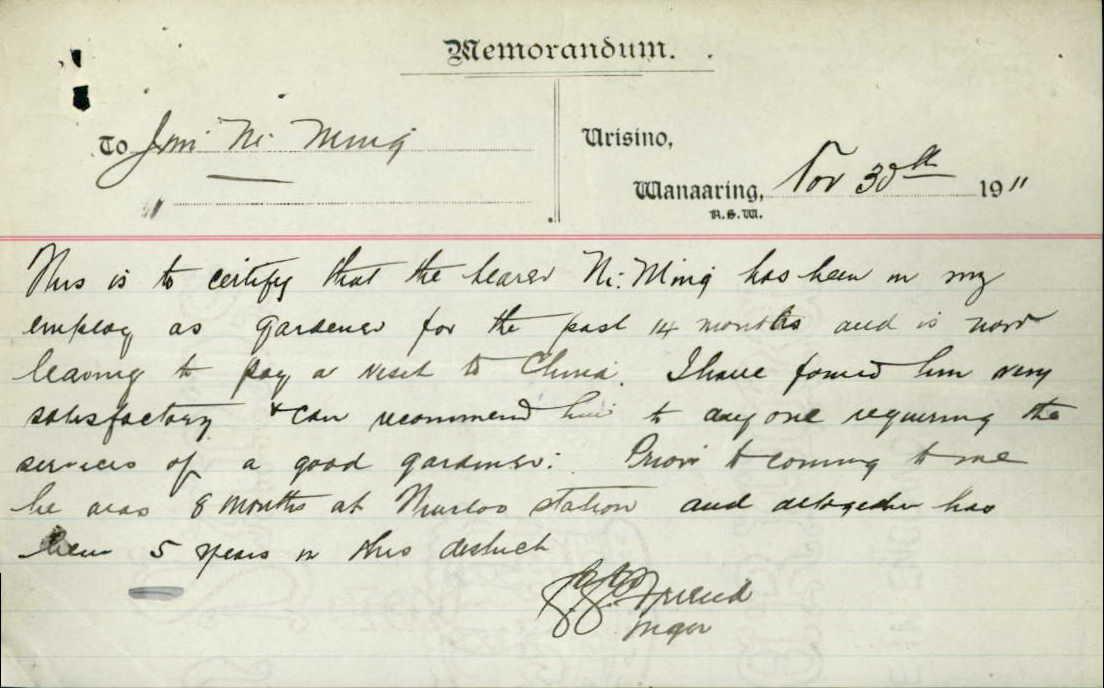 Memorandum.
To Jim Ni Ming
Urisino,
Wanaaring, Nov 30th 1911
N.S.W.
This is to certify that the bearer Ni. Ming has been in my
employ as gardener for the past 14 months and is now
leaving to pay a visit to China. I have found him very
satisfactory & can recommend him to any one requiring the
services of a good gardener. Prior to coming to me
he was 8 months at station and altogether has
been 5 years in this district
Friend
Mgr